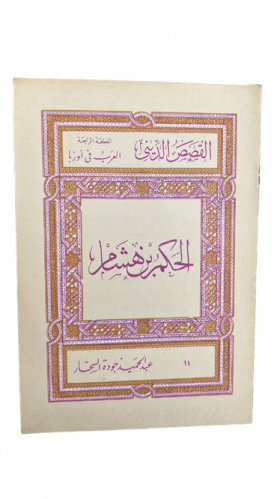 القصص الديني
الحلقة الرابعة
العرب في أوربا
الحكم بن هشام
١١
عبد الحميد جودة السحار